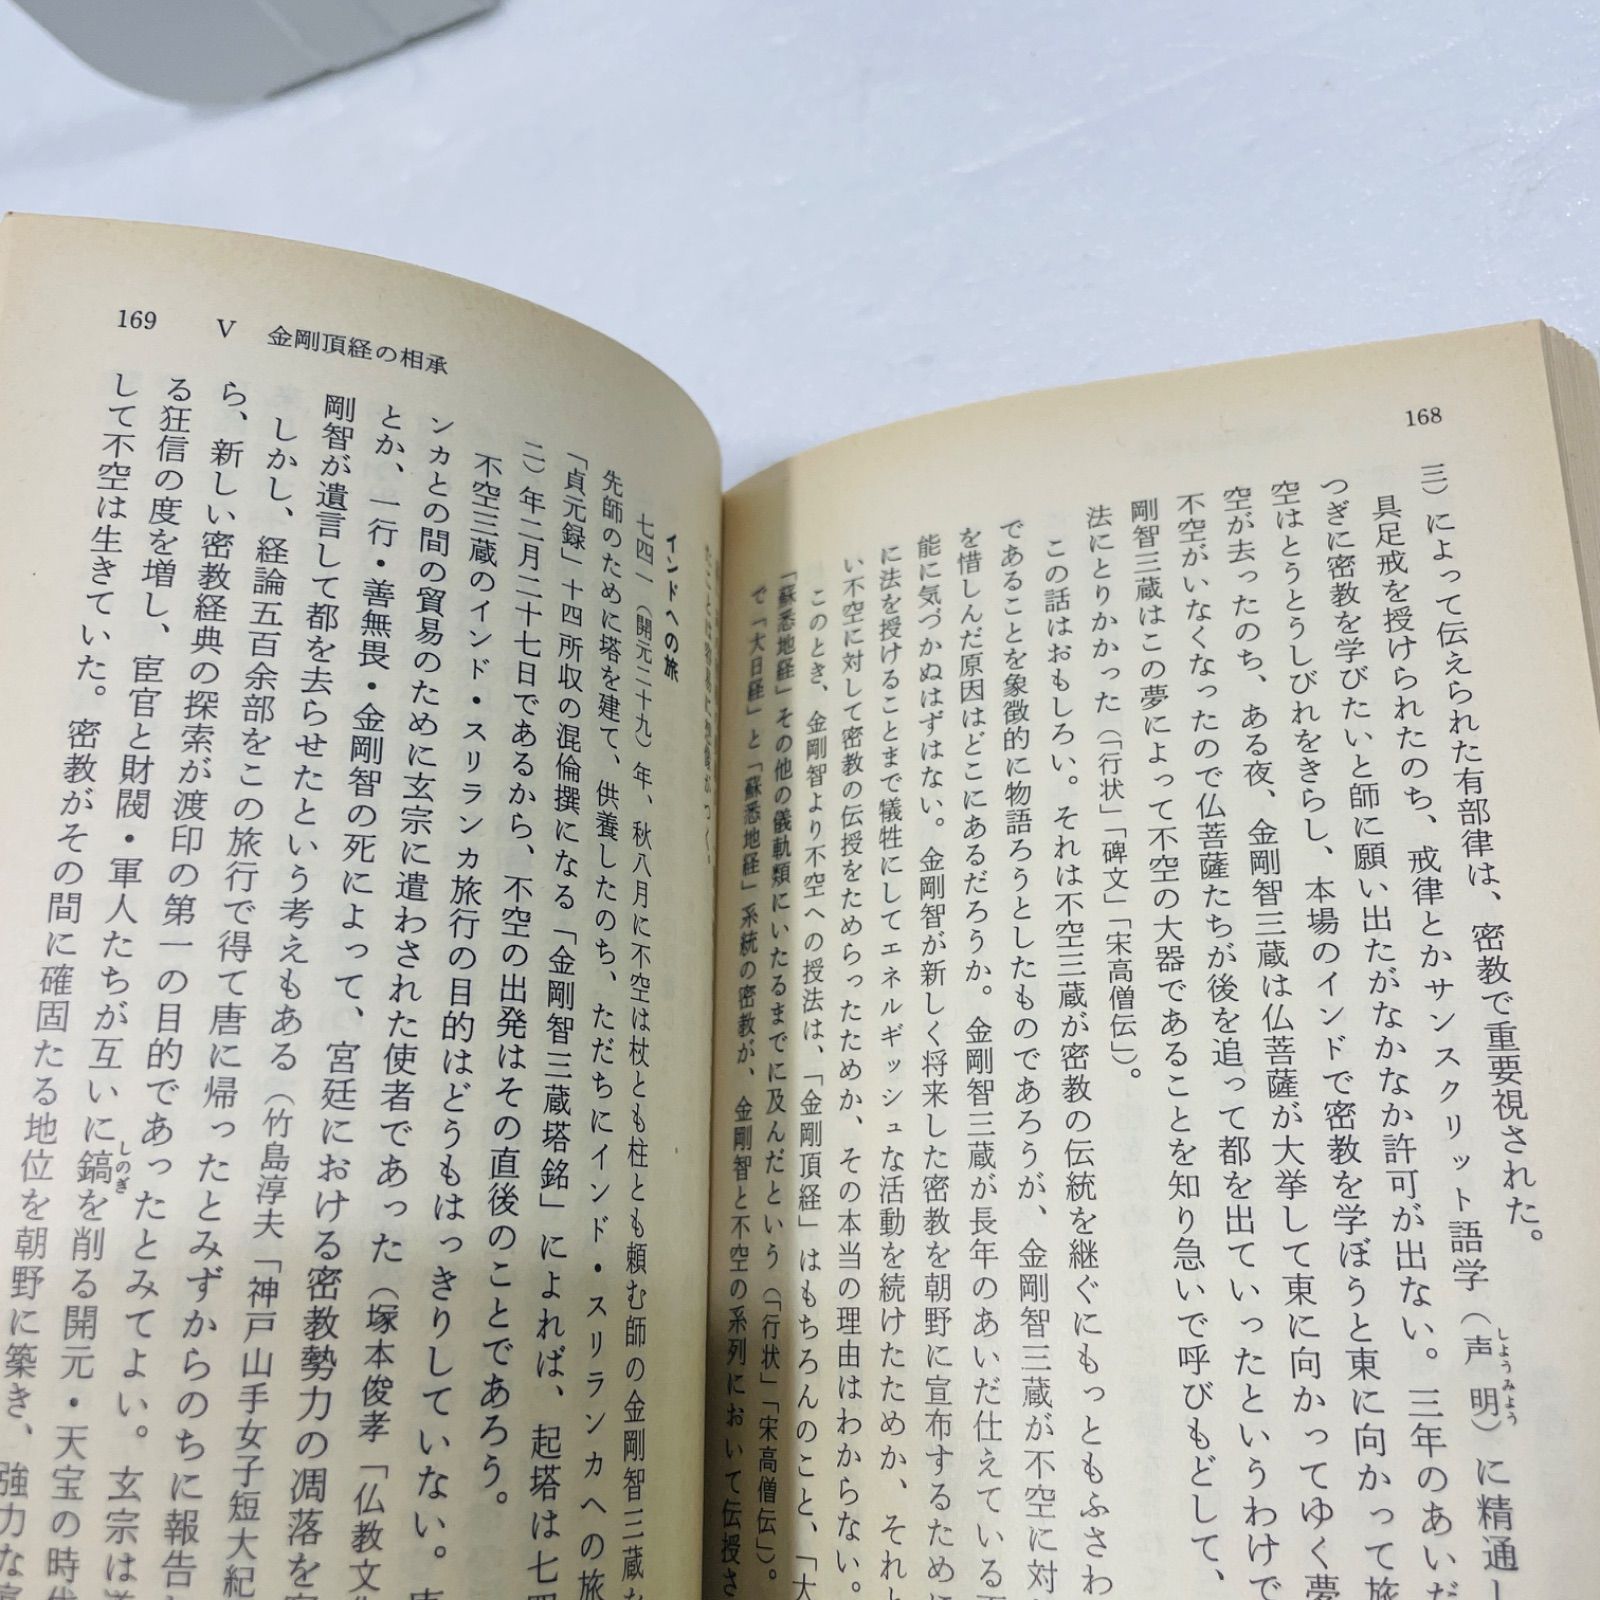 168
三）によって伝えられた有部律は、密教で重要視された。
具足戒を授けられたのち、戒律とかサンスクリット語学（声明）に精通し
しようみよう
つぎに密教を学びたいと師に願い出たがなかなか許可が出ない。三年のあいだ
空はとうとうしびれをきらし、本場のインドで密教を学ぼうと東に向かって旅
空が去ったのち、ある夜、金剛智三蔵は仏菩薩が大挙して東に向かってゆく夢
不空がいなくなったので仏菩薩たちが後を追って都を出ていったというわけで
剛智三蔵はこの夢によって不空の大器であることを知り急いで呼びもどして、
法にとりかかった（「行状」「碑文」「宋高僧伝」）。
この話はおもしろい。それは不空三蔵が密教の伝統を継ぐにもっともふさわ
であることを象徴的に物語ろうとしたものであろうが、金剛智三蔵が不空に対
を惜しんだ原因はどこにあるだろうか。金剛智三蔵が長年のあいだ仕えている
能に気づかぬはずはない。金剛智が新しく将来した密教を朝野に宣布するために
に法を授けることまで犠牲にしてエネルギッシュな活動を続けたためか、それと
い不空に対して密教の伝授をためらったためか、その本当の理由はわからない。
このとき、金剛智より不空への授法は、「金剛頂経」はもちろんのこと、「大
「蘇悉地経」その他の儀軌類にいたるまでに及んだという（「行状」「宋高僧伝」）。
で「大日経」と「蘇悉地経」系統の密教が、金剛智と不空の系列において伝授さ
169 V 金剛頂経の相承
インドへの旅
七四一（開元二十九）年、秋八月に不空は杖とも柱とも頼む師の金剛智三蔵を
先師のために塔を建て、供養したのち、ただちにインド・スリランカへの旅
「貞元録」十四所収の混倫撰になる「金剛智三蔵塔銘」によれば、起塔は七四
二）年二月二十七日であるから、不空の出発はその直後のことであろう。
不空三蔵のインド・スリランカ旅行の目的はどうもはっきりしていない。
ンカとの間の貿易のために玄宗に遣わされた使者であった（塚本俊孝「仏教文
とか、一行・善無畏・金剛智の死によって、宮廷における密教勢力の凋落を
剛智が遺言して都を去らせたという考えもある（竹島淳夫「神戸山手女子短大紀
しかし、経論五百余部をこの旅行で得て唐に帰ったとみずからのちに報告
ら、新しい密教経典の探索が渡印の第一の目的であったとみてよい。玄宗は
る狂信の度を増し、宦官と財閥・軍人たちが互いに鎬を削る開元・天宝の時
しのぎ
して不空は生きていた。密教がその間に確固たる地位を朝野に築き、強力な